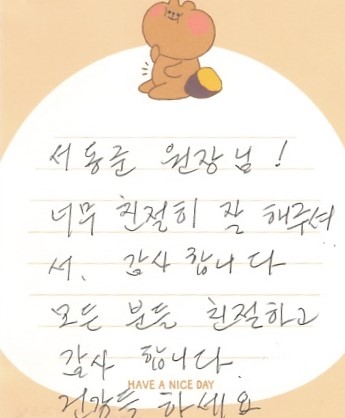 서동준 원장님!
너무 친절히 잘 해주셔
서. 감사 합니다
모든 분들 친절하고
감사 합니다.
HAVE A NICE DAY
건강들 하세요